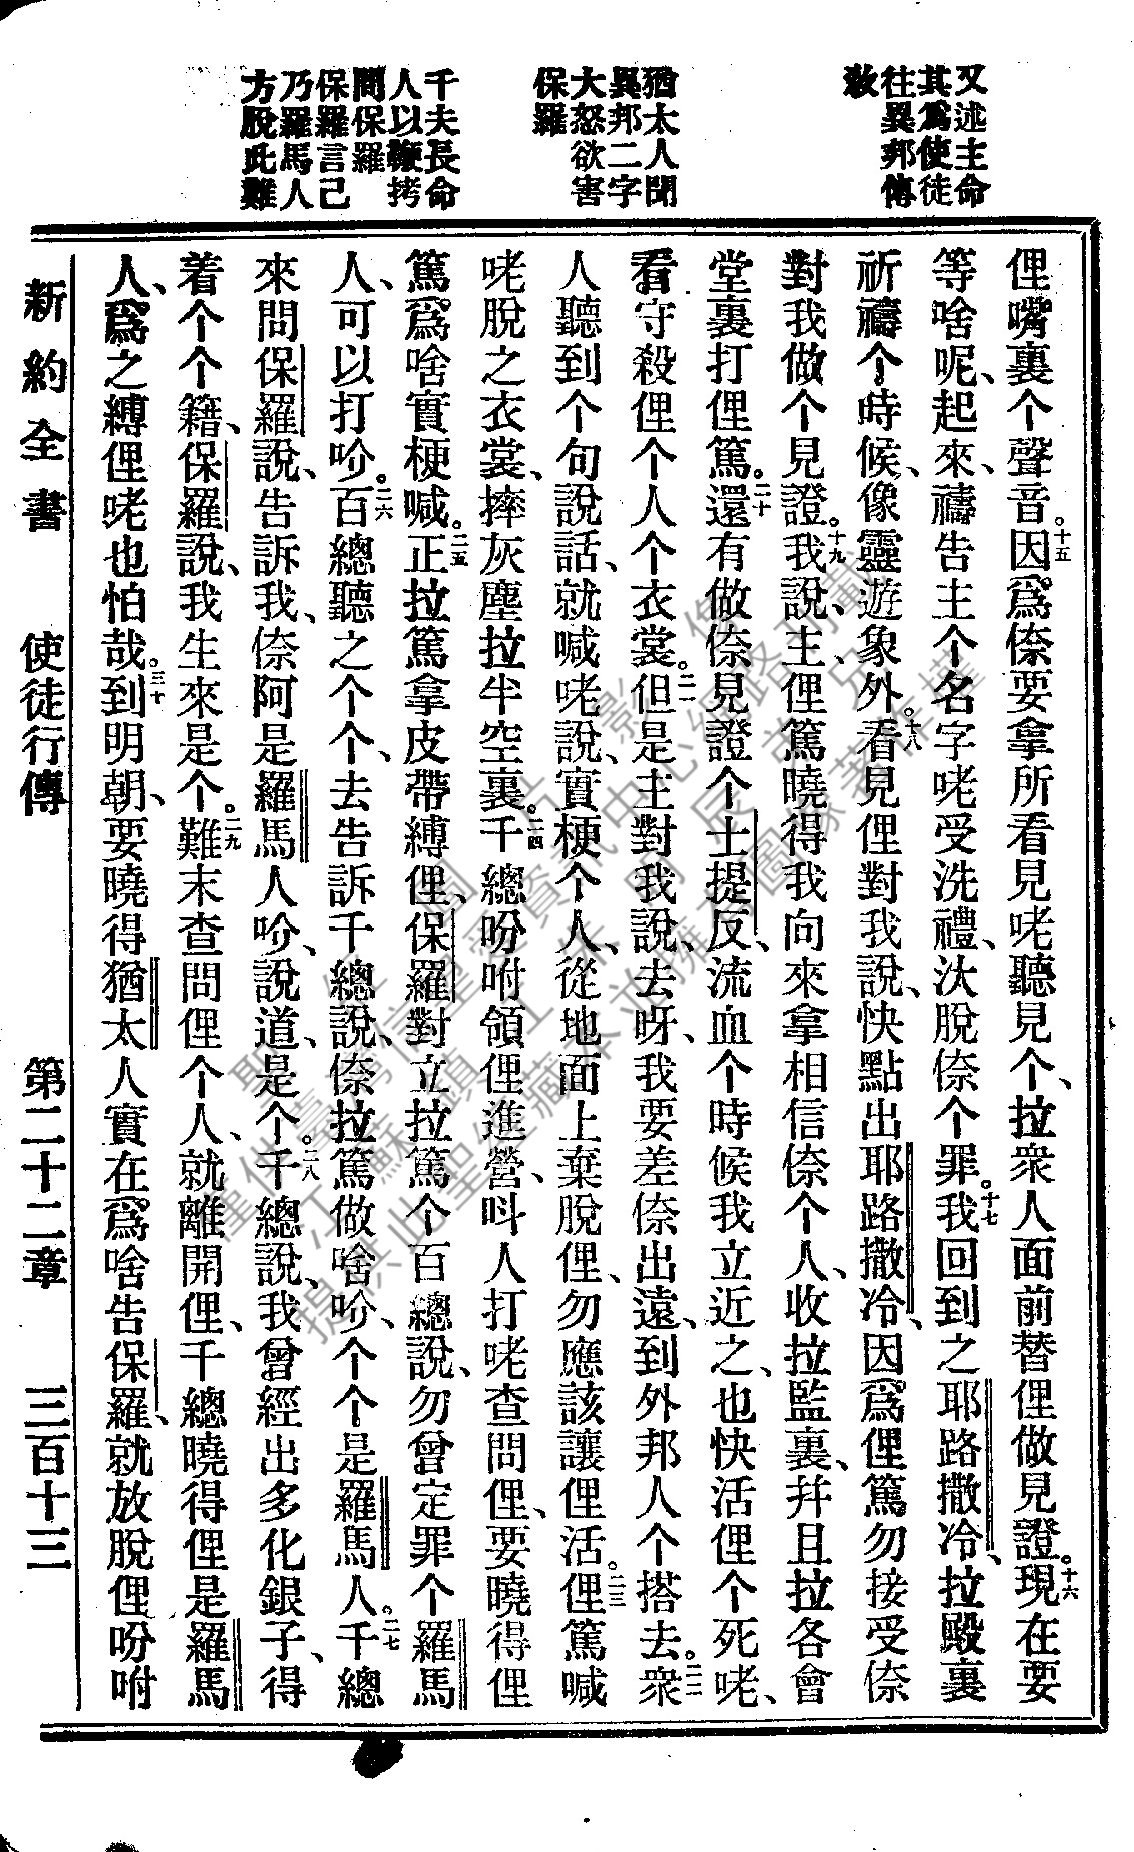 又述主命
其爲使徒
往異邦傳
敎
猶太人聞
異邦二字
大怒欲害
保羅
千夫長命
人以鞭拷
問保羅
保羅言己
乃羅馬人
方脫此難
俚嘴裏个聲音。十五因爲㑚要拿所看見咾聽見个、拉衆人面前替俚做見證。十六現在要
等啥呢、起來、禱告主个名字咾受洗禮、汏脫㑚个罪。十七我回到之耶路撒冷、拉殿裏
祈禱个時候、像靈遊象外。十八看見俚對我說、快點出耶路撒冷、因爲俚篤勿接受㑚
對我做个見證。十九我說、主、俚篤曉得我向來拿相信㑚个人、收拉監裏、幷且拉各會
堂裏打俚篤。二十還有做㑚見證个士提反、流血个時候我立近之、也快活俚个死咾、
看守殺俚个人个衣裳。二一但是主對我說、去呀、我要差㑚出遠、到外邦人个搭去。二二衆
人聽到个句說話、就喊咾說、實梗个人、從地面上棄脫俚、勿應該讓俚活。二三俚篤喊
咾脫之衣裳、摔灰塵拉半空裏。二四千總吩咐領俚進營、呌人打咾查問俚、要曉得俚
篤爲啥實梗喊。二五正拉篤拿皮帶縛俚、保羅對立拉篤个百總說、勿曾定罪个羅馬
人、可以打吤。二六百總聽之个个、去告訴千總說、㑚拉篤做啥吤、个个是羅馬人。二七千總
來問保羅說、告訴我、㑚阿是羅馬人吤、說道、是个。二八千總說、我曾經出多化銀子、得
着个个籍、保羅說、我生來是个。二九難末查問俚个人、就離開俚、千總曉得俚是羅馬
人、爲之縛俚咾也怕哉。三十到明朝、要曉得猶太人實在爲啥告保羅、就放脫俚吩咐
新約全書　使徒行傳　第二十二章　三百十三